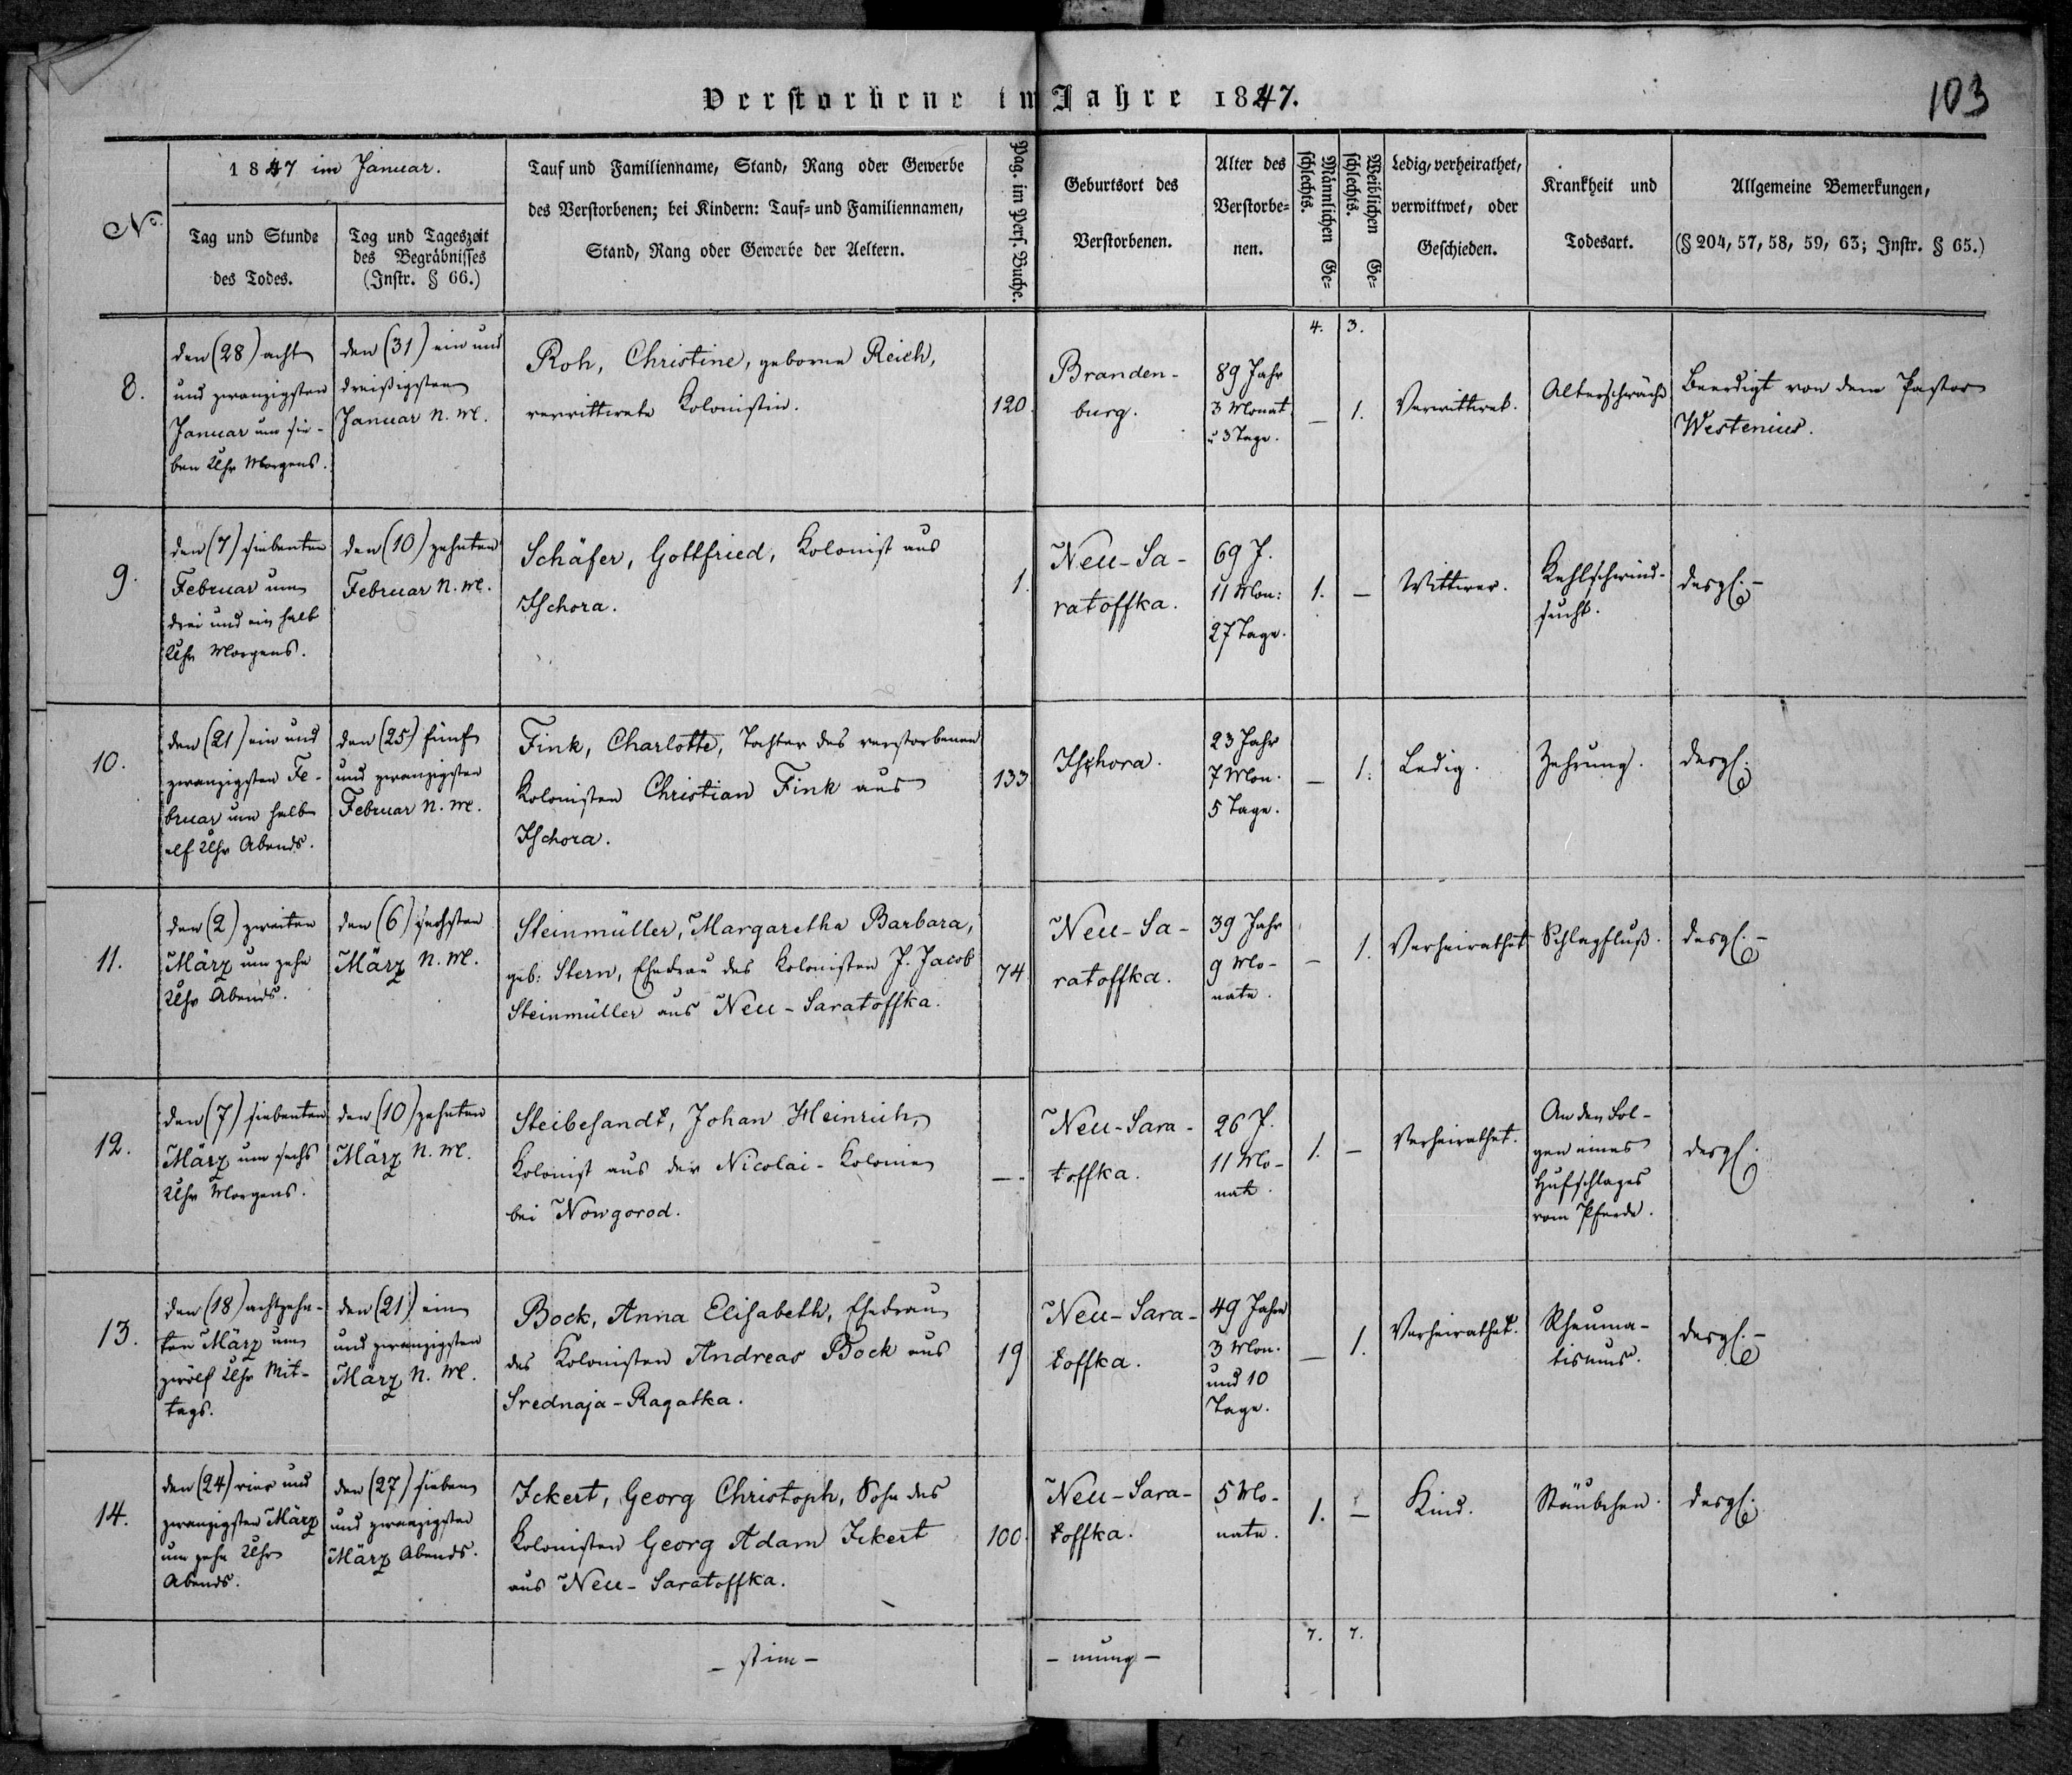 Verstorbene im Jahre 1847.
103
No.
1847 im Januar.
Tag und Stunde
des Todes.
Tag und Tageszeit
des Begräbnisses
(Instr. § 66.)
Tauf und Familienname, Stand, Rang oder Gewerbe
des Verstorbenen; bei Kindern: Tauf- und Familiennamen,
Stand, Rang oder Gewerbe der Aeltern.
Pag. im Pers. Buche.
Geburtsort des
Verstorbenen.
Alter des
Verstorbe-
nen.
Männlichen Ge-
schlechts.
Weiblichen Ge-
schlechts.
Ledig, verheirathet,
verwittwet, oder
Geschieden.
Krankheit und
Todesart.
Allgemeine Bemerkungen,
(§ 204, 57, 58, 59, 63; Instr. § 65.)
4. 3.
8.
den (28) acht
und zwanzigsten
Januar um sie-
ben Uhr Morgens.
den (31) ein und
dreißigsten
Januar N. M.
Roh, Christine, geborne Reich,
verwittwete Kolonistin.
120.
Branden-
burg.
89 Jahr
3 Monat
u 3 Tage.
—
1.
Verwittwet.
Altersschwäche
Beerdigt von dem Pastor
Westenius.
9.
den (7) siebenten
Februar um
drei und ein halb
Uhr Morgens.
den (10) zehnten
Februar N. M.
Schäfer, Gottfried, Kolonist aus
Ischora.
1.
Neu-Sa-
ratoffka.
69 J.
11 Mon:
27 Tage.
1.
—
Wittwer.
Kehlschwind-
sucht.
desgl. -
10.
den (21) ein und
zwanzigsten Fe-
bruar um halb
elf Uhr Abends.
den (25) fünf
und zwanzigsten
Februar N. M.
Fink, Charlotte, Tochter des verstorbenen
Kolonisten Christian Fink aus
Ischora.
133
Ischora.
23 Jahr
7 Mon.
5 Tage.
—
1.
Ledig.
Zehrung.
desgl.
11.
den (2) zweiten
März um zehn
Uhr Abends.
den (6) sechsten
März N. M.
Steinmüller, Margaretha Barbara,
geb: Stern, Ehefrau des Kolonisten J. Jacob
Steinmüller aus Neu-Saratoffka.
74
Neu-Sa-
ratoffka.
39 Jahr
9 Mo-
nate.
—
1.
Verheirathet
Schlagfluß.
desgl. -
12.
den (7) siebenten
März um sechs
Uhr Morgens.
den (10) zehnten
März N. M.
Steibesandt, Johan Heinrich,
Kolonist aus der Nicolai-Kolonie
bei Nowgorod.
—.
Neu-Sara-
toffka.
26 J.
11 Mo-
nate.
1.
—
Verheirathet.
An den Fol-
gen eines
Hufschlages
vom Pferde.
desgl.
13.
den (18) achtzehn-
ten März um
zwölf Uhr Mit-
tags.
den (21) ein
und zwanzigsten
März N. M.
Bock, Anna Elisabeth, Ehefrau
des Kolonisten Andreas Bock aus
Srednaja-Ragatka.
19
Neu-Sara-
toffka.
49 Jahre
3 Mon.
und 10
Tage.
—
1.
Verheirathet.
Rheuma-
tismus.
desgl. -
14.
den (24) vier und
zwanzigsten März
um zehn Uhr
Abends.
den (27) sieben
und zwanzigsten
März Abends.
Ickert, Georg Christoph, Sohn des
Kolonisten Georg Adam Ickert
aus Neu-Saratoffka.
100.
Neu-Sara-
toffka.
5 Mo-
nate.
1.
—
Kind.
Stäubchen.
desgl.
7. 7.
- stim -
- mung -